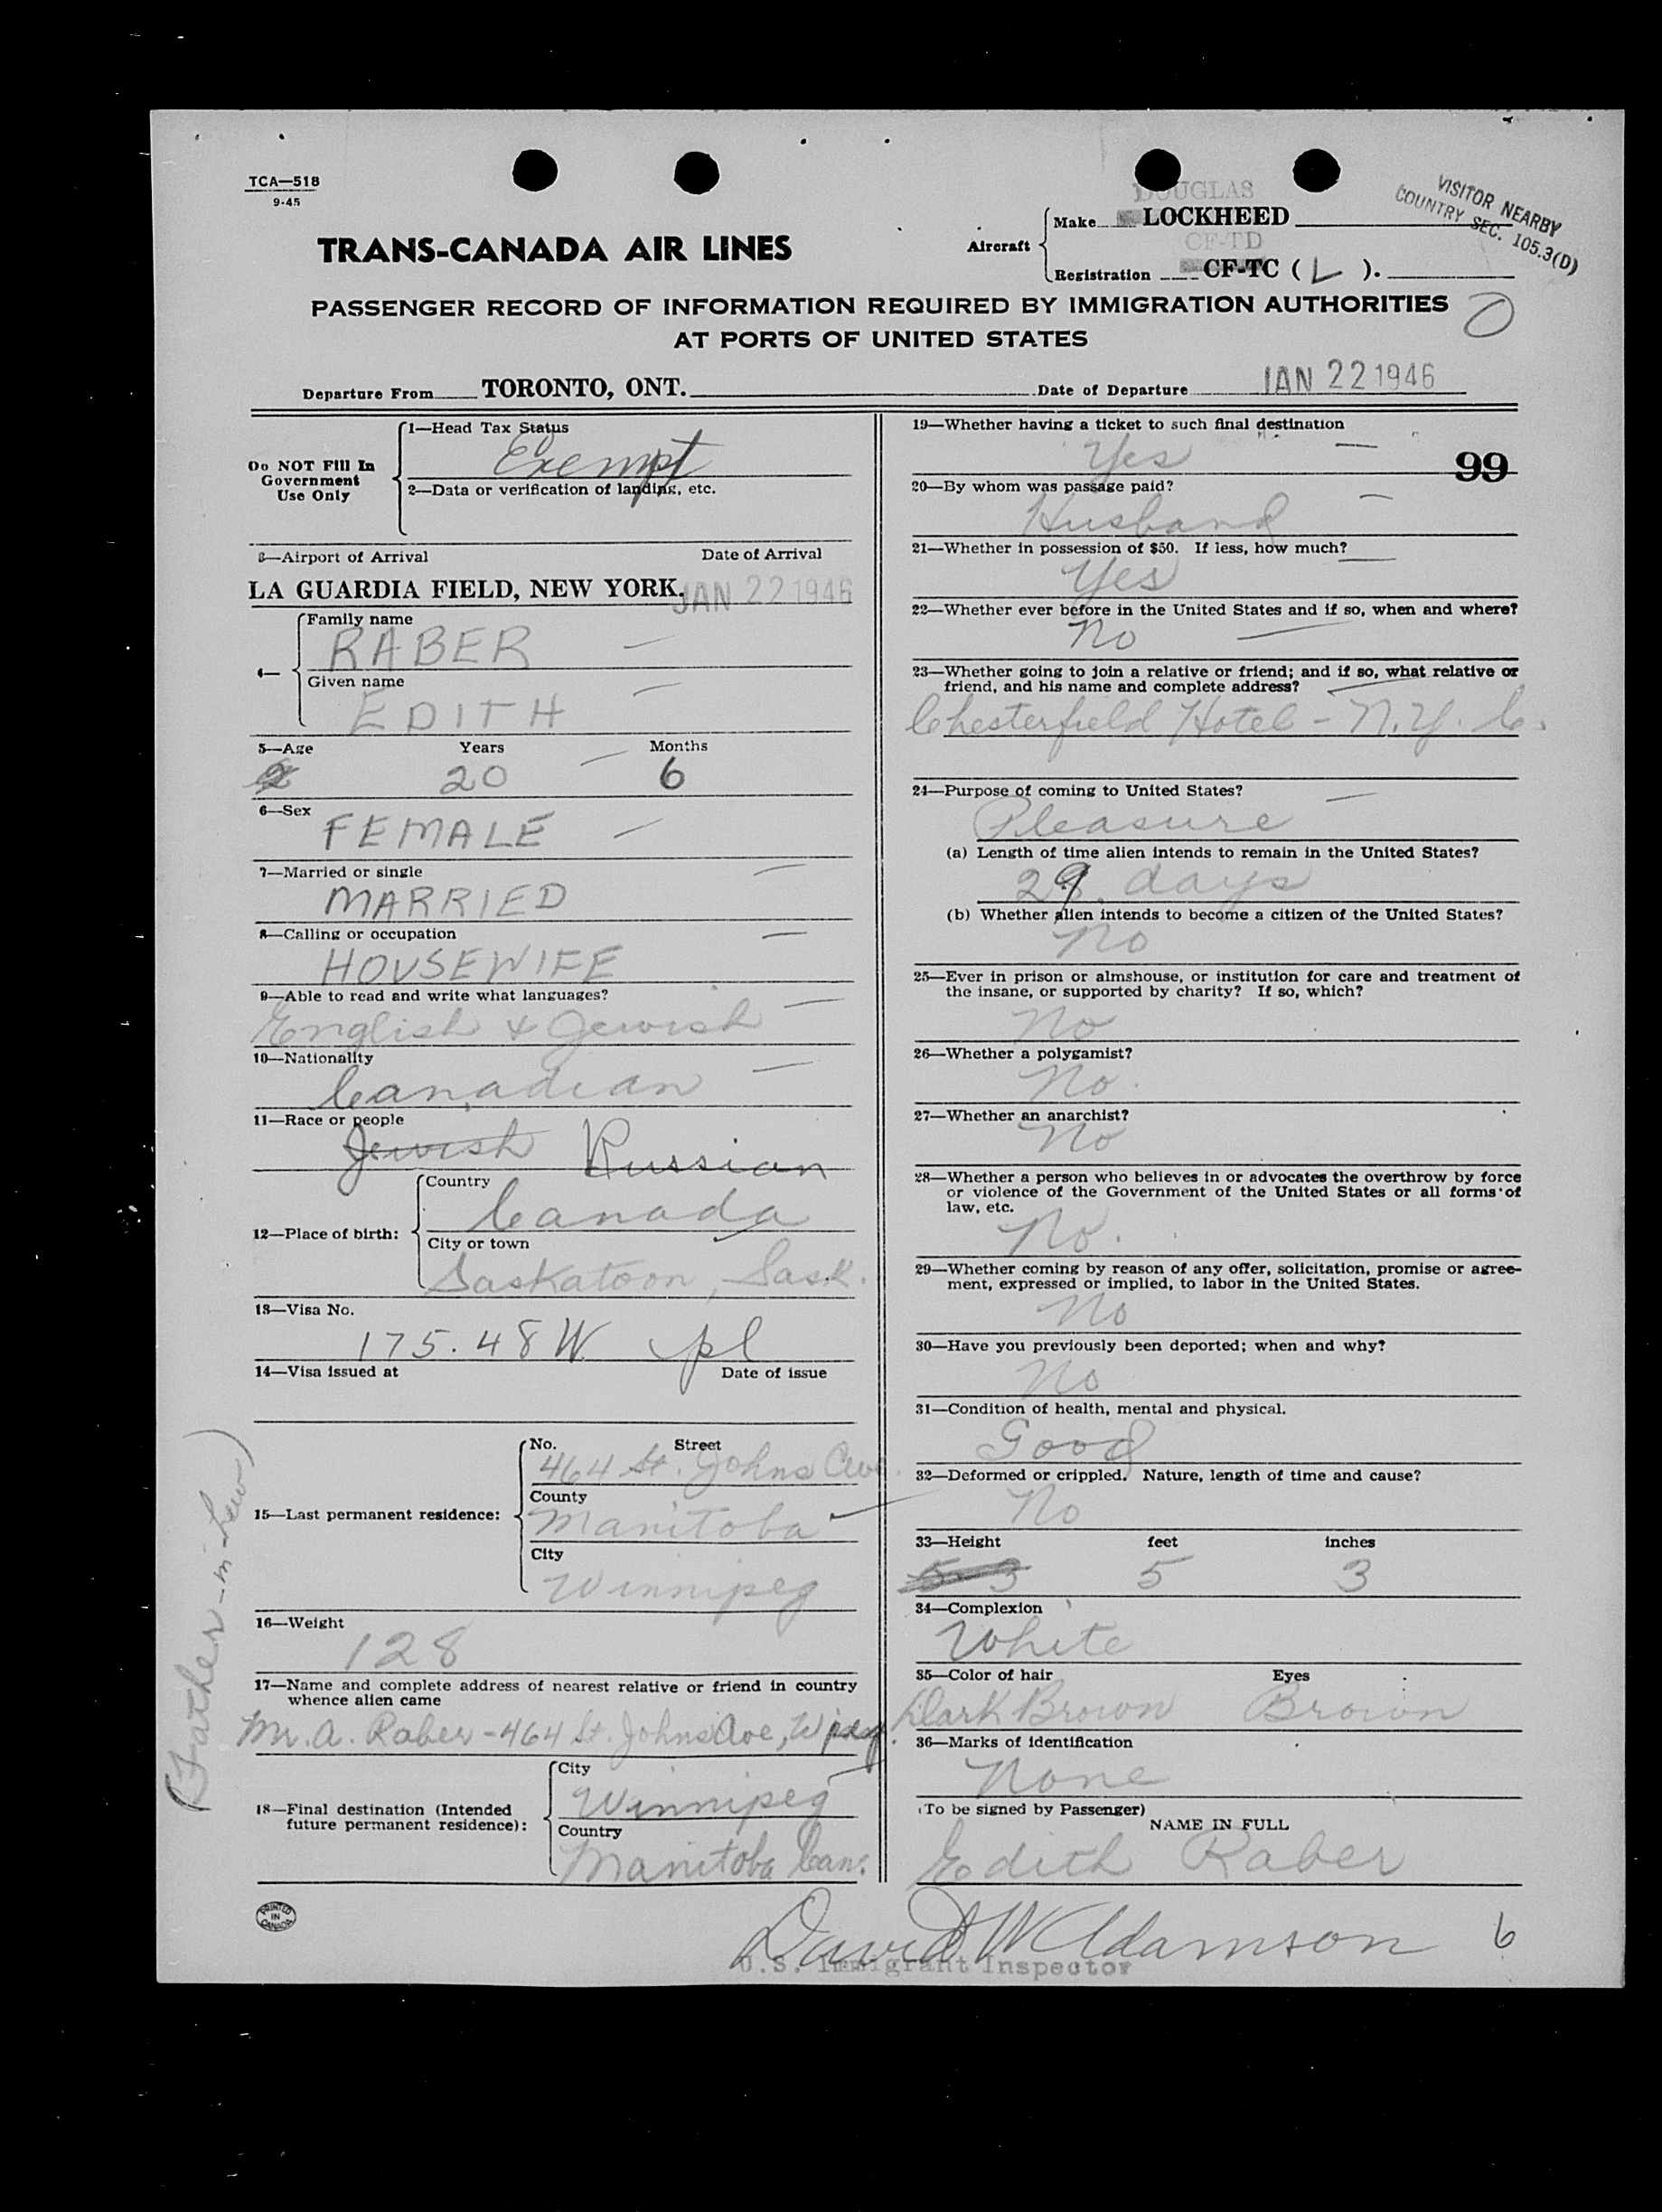 TCA—518
9-45
DOUGLAS
Make LOCKHEED
VISITOR NEARBY
COUNTRY SEC. 105.3(D)
TRANS-CANADA AIR LINES
Aircraft
CF-TD
Registration CF-TC ( L ).
PASSENGER RECORD OF INFORMATION REQUIRED BY IMMIGRATION AUTHORITIES
AT PORTS OF UNITED STATES
O
Departure From TORONTO, ONT. Date of Departure JAN 22 1946
Do NOT Fill In
Government
Use Only
1—Head Tax Status
Exempt
2—Data or verification of landing, etc.
3—Airport of Arrival Date of Arrival
LA GUARDIA FIELD, NEW YORK. JAN 22 1946
4—
Family name
RABER
Given name
EDITH
5—Age Years Months
2 20 6
6—Sex
FEMALE
7—Married or single
MARRIED
8—Calling or occupation
HOUSEWIFE
9—Able to read and write what languages?
English & Jewish
10—Nationality
Canadian
11—Race or people
Jewish Russian
12—Place of birth:
Country
Canada
City or town
Saskatoon, Sask.
13—Visa No.
175.48W pl
14—Visa issued at Date of issue
15—Last permanent residence:
No. Street
464 St. Johns Ave.
County
Manitoba
City
Winnipeg
16—Weight
128
17—Name and complete address of nearest relative or friend in country
whence alien came
Mr. A. Raber - 464 St. Johns Ave, Wpeg.
(Father-in-Law)
18—Final destination (Intended
future permanent residence):
City
Winnipeg
Country
Manitoba Can.
PRINTED
IN
CANADA
19—Whether having a ticket to such final destination
Yes
99
20—By whom was passage paid?
Husband
21—Whether in possession of $50. If less, how much?
Yes
22—Whether ever before in the United States and if so, when and where?
No
23—Whether going to join a relative or friend; and if so, what relative or
friend, and his name and complete address?
Chesterfield Hotel - N.Y.C.
24—Purpose of coming to United States?
Pleasure
(a) Length of time alien intends to remain in the United States?
29 days
(b) Whether alien intends to become a citizen of the United States?
No
25—Ever in prison or almshouse, or institution for care and treatment of
the insane, or supported by charity? If so, which?
No
26—Whether a polygamist?
No.
27—Whether an anarchist?
No
28—Whether a person who believes in or advocates the overthrow by force
or violence of the Government of the United States or all forms of
law, etc.
No.
29—Whether coming by reason of any offer, solicitation, promise or agree-
ment, expressed or implied, to labor in the United States.
No
30—Have you previously been deported; when and why?
No
31—Condition of health, mental and physical.
Good
32—Deformed or crippled. Nature, length of time and cause?
No
33—Height feet inches
5 3 5 3
34—Complexion
White
35—Color of hair Eyes
Dark Brown Brown
36—Marks of identification
None
(To be signed by Passenger)
NAME IN FULL
Edith Raber
David W Adamson 6
U.S. Immigrant Inspector